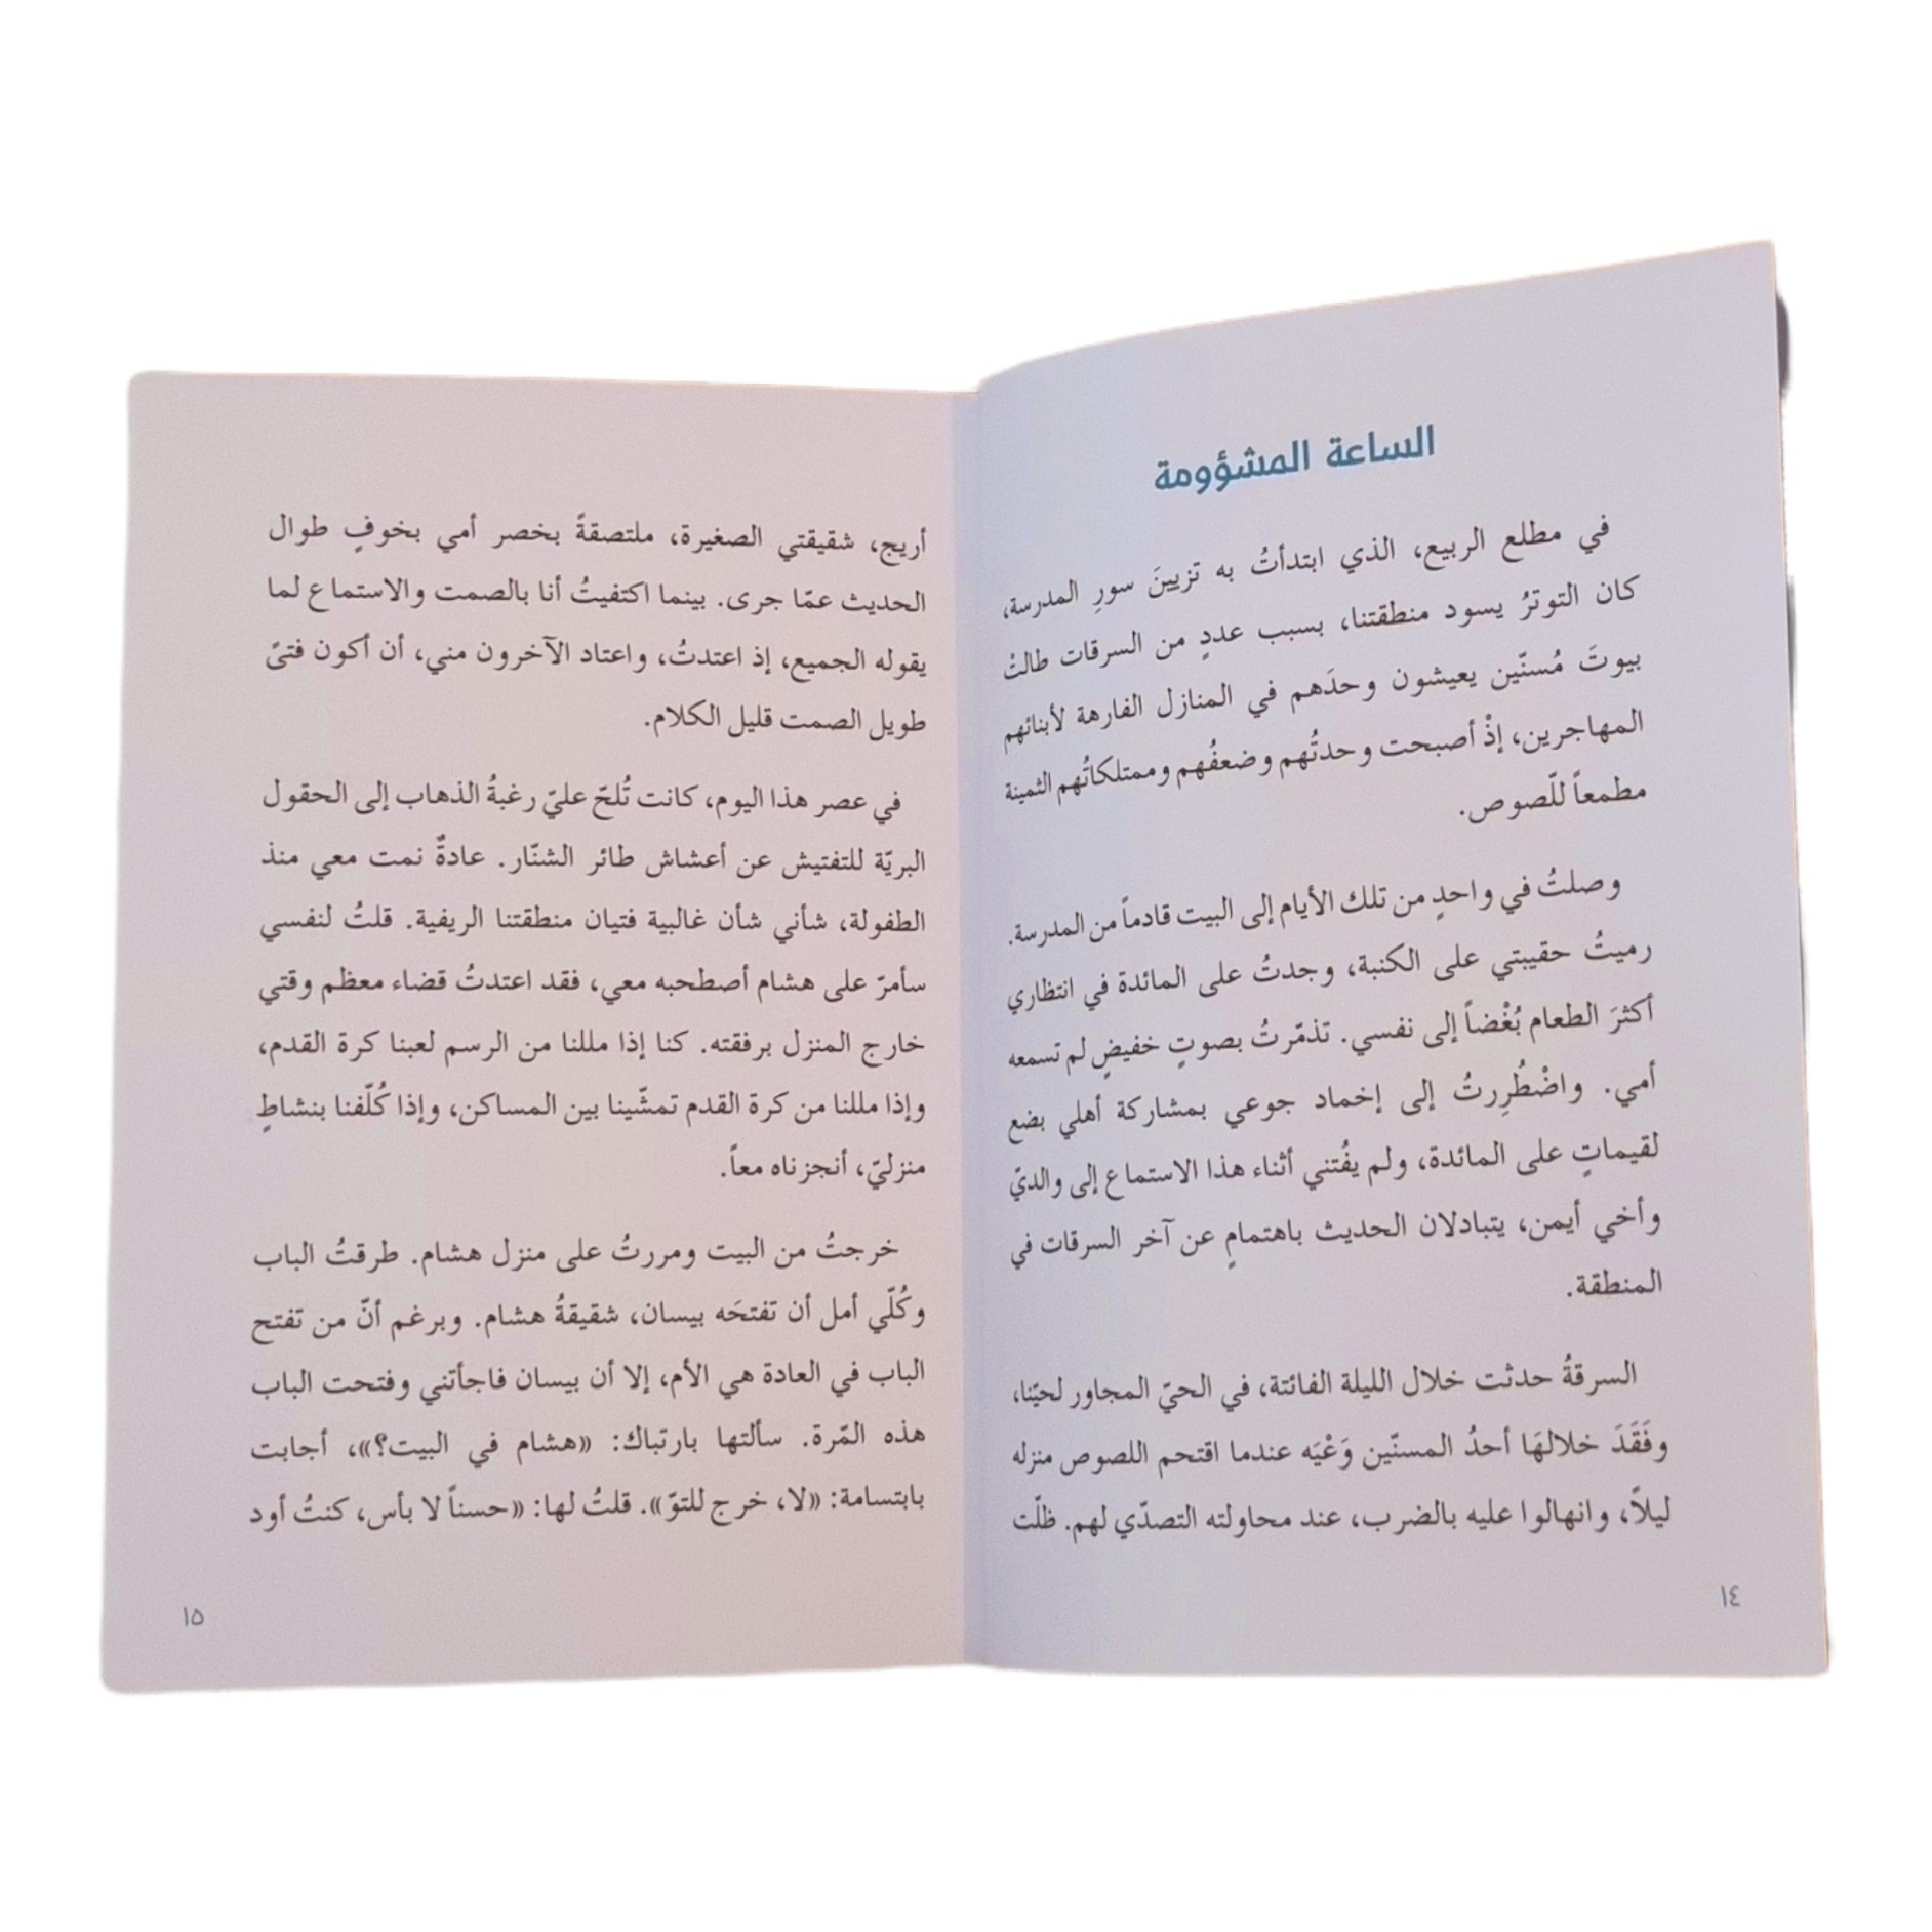 الساعة المشؤومة
في مطلع الربيع، الذي ابتدأتُ به تزيينَ سورِ المدرسة،
كان التوترُ يسود منطقتنا، بسبب عددٍ من السرقات طالتْ
بيوتَ مُسنّين يعيشون وحدَهم في المنازل الفارهة لأبنائهم
المهاجرين، إذْ أصبحت وحدتُهم وضعفُهم وممتلكاتُهم الثمينة
مطمعاً للّصوص.
وصلتُ في واحدٍ من تلك الأيام إلى البيت قادماً من المدرسة.
رميتُ حقيبتي على الكنبة، وجدتُ على المائدة في انتظاري
أكثرَ الطعام بُغْضاً إلى نفسي. تذمّرتُ بصوتٍ خفيضٍ لم تسمعه
أمي. واضْطُرِرتُ إلى إخماد جوعي بمشاركة أهلي بضع
لقيماتٍ على المائدة، ولم يفُتني أثناء هذا الاستماع إلى والديّ
وأخي أيمن، يتبادلان الحديث باهتمامٍ عن آخر السرقات في
المنطقة.
السرقةُ حدثت خلال الليلة الفائتة، في الحيّ المجاور لحيّنا،
وفَقَدَ خلالهَا أحدُ المسنّين وَعْيَه عندما اقتحم اللصوص منزله
ليلاً، وانهالوا عليه بالضرب، عند محاولته التصدّي لهم. ظلّت
١٤
أريج، شقيقتي الصغيرة، ملتصقةً بخصر أمي بخوفٍ طوال
الحديث عمّا جرى. بينما اكتفيتُ أنا بالصمت والاستماع لما
يقوله الجميع، إذ اعتدتُ، واعتاد الآخرون مني، أن أكون فتىً
طويل الصمت قليل الكلام.
في عصر هذا اليوم، كانت تُلحّ عليّ رغبةُ الذهاب إلى الحقول
البريّة للتفتيش عن أعشاش طائر الشنّار. عادةٌ نمت معي منذ
الطفولة، شأني شأن غالبية فتيان منطقتنا الريفية. قلتُ لنفسي
سأمرّ على هشام أصطحبه معي، فقد اعتدتُ قضاء معظم وقتي
خارج المنزل برفقته. كنا إذا مللنا من الرسم لعبنا كرة القدم،
وإذا مللنا من كرة القدم تمشّينا بين المساكن، وإذا كُلّفنا بنشاطٍ
منزليّ، أنجزناه معاً.
خرجتُ من البيت ومررتُ على منزل هشام. طرقتُ الباب
وكُلّي أمل أن تفتحَه بيسان، شقيقةُ هشام. وبرغم أنّ من تفتح
الباب في العادة هي الأم، إلا أن بيسان فاجأتني وفتحت الباب
هذه المّرة. سألتها بارتباك: «هشام في البيت؟»، أجابت
بابتسامة: «لا، خرج للتوّ». قلتُ لها: «حسناً لا بأس، كنتُ أود
١٥